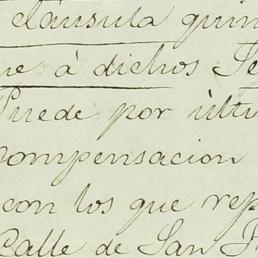 cláusula quin
ue á dichos Se
Puede por últi
compensacion
con los que rep
Calle de San F